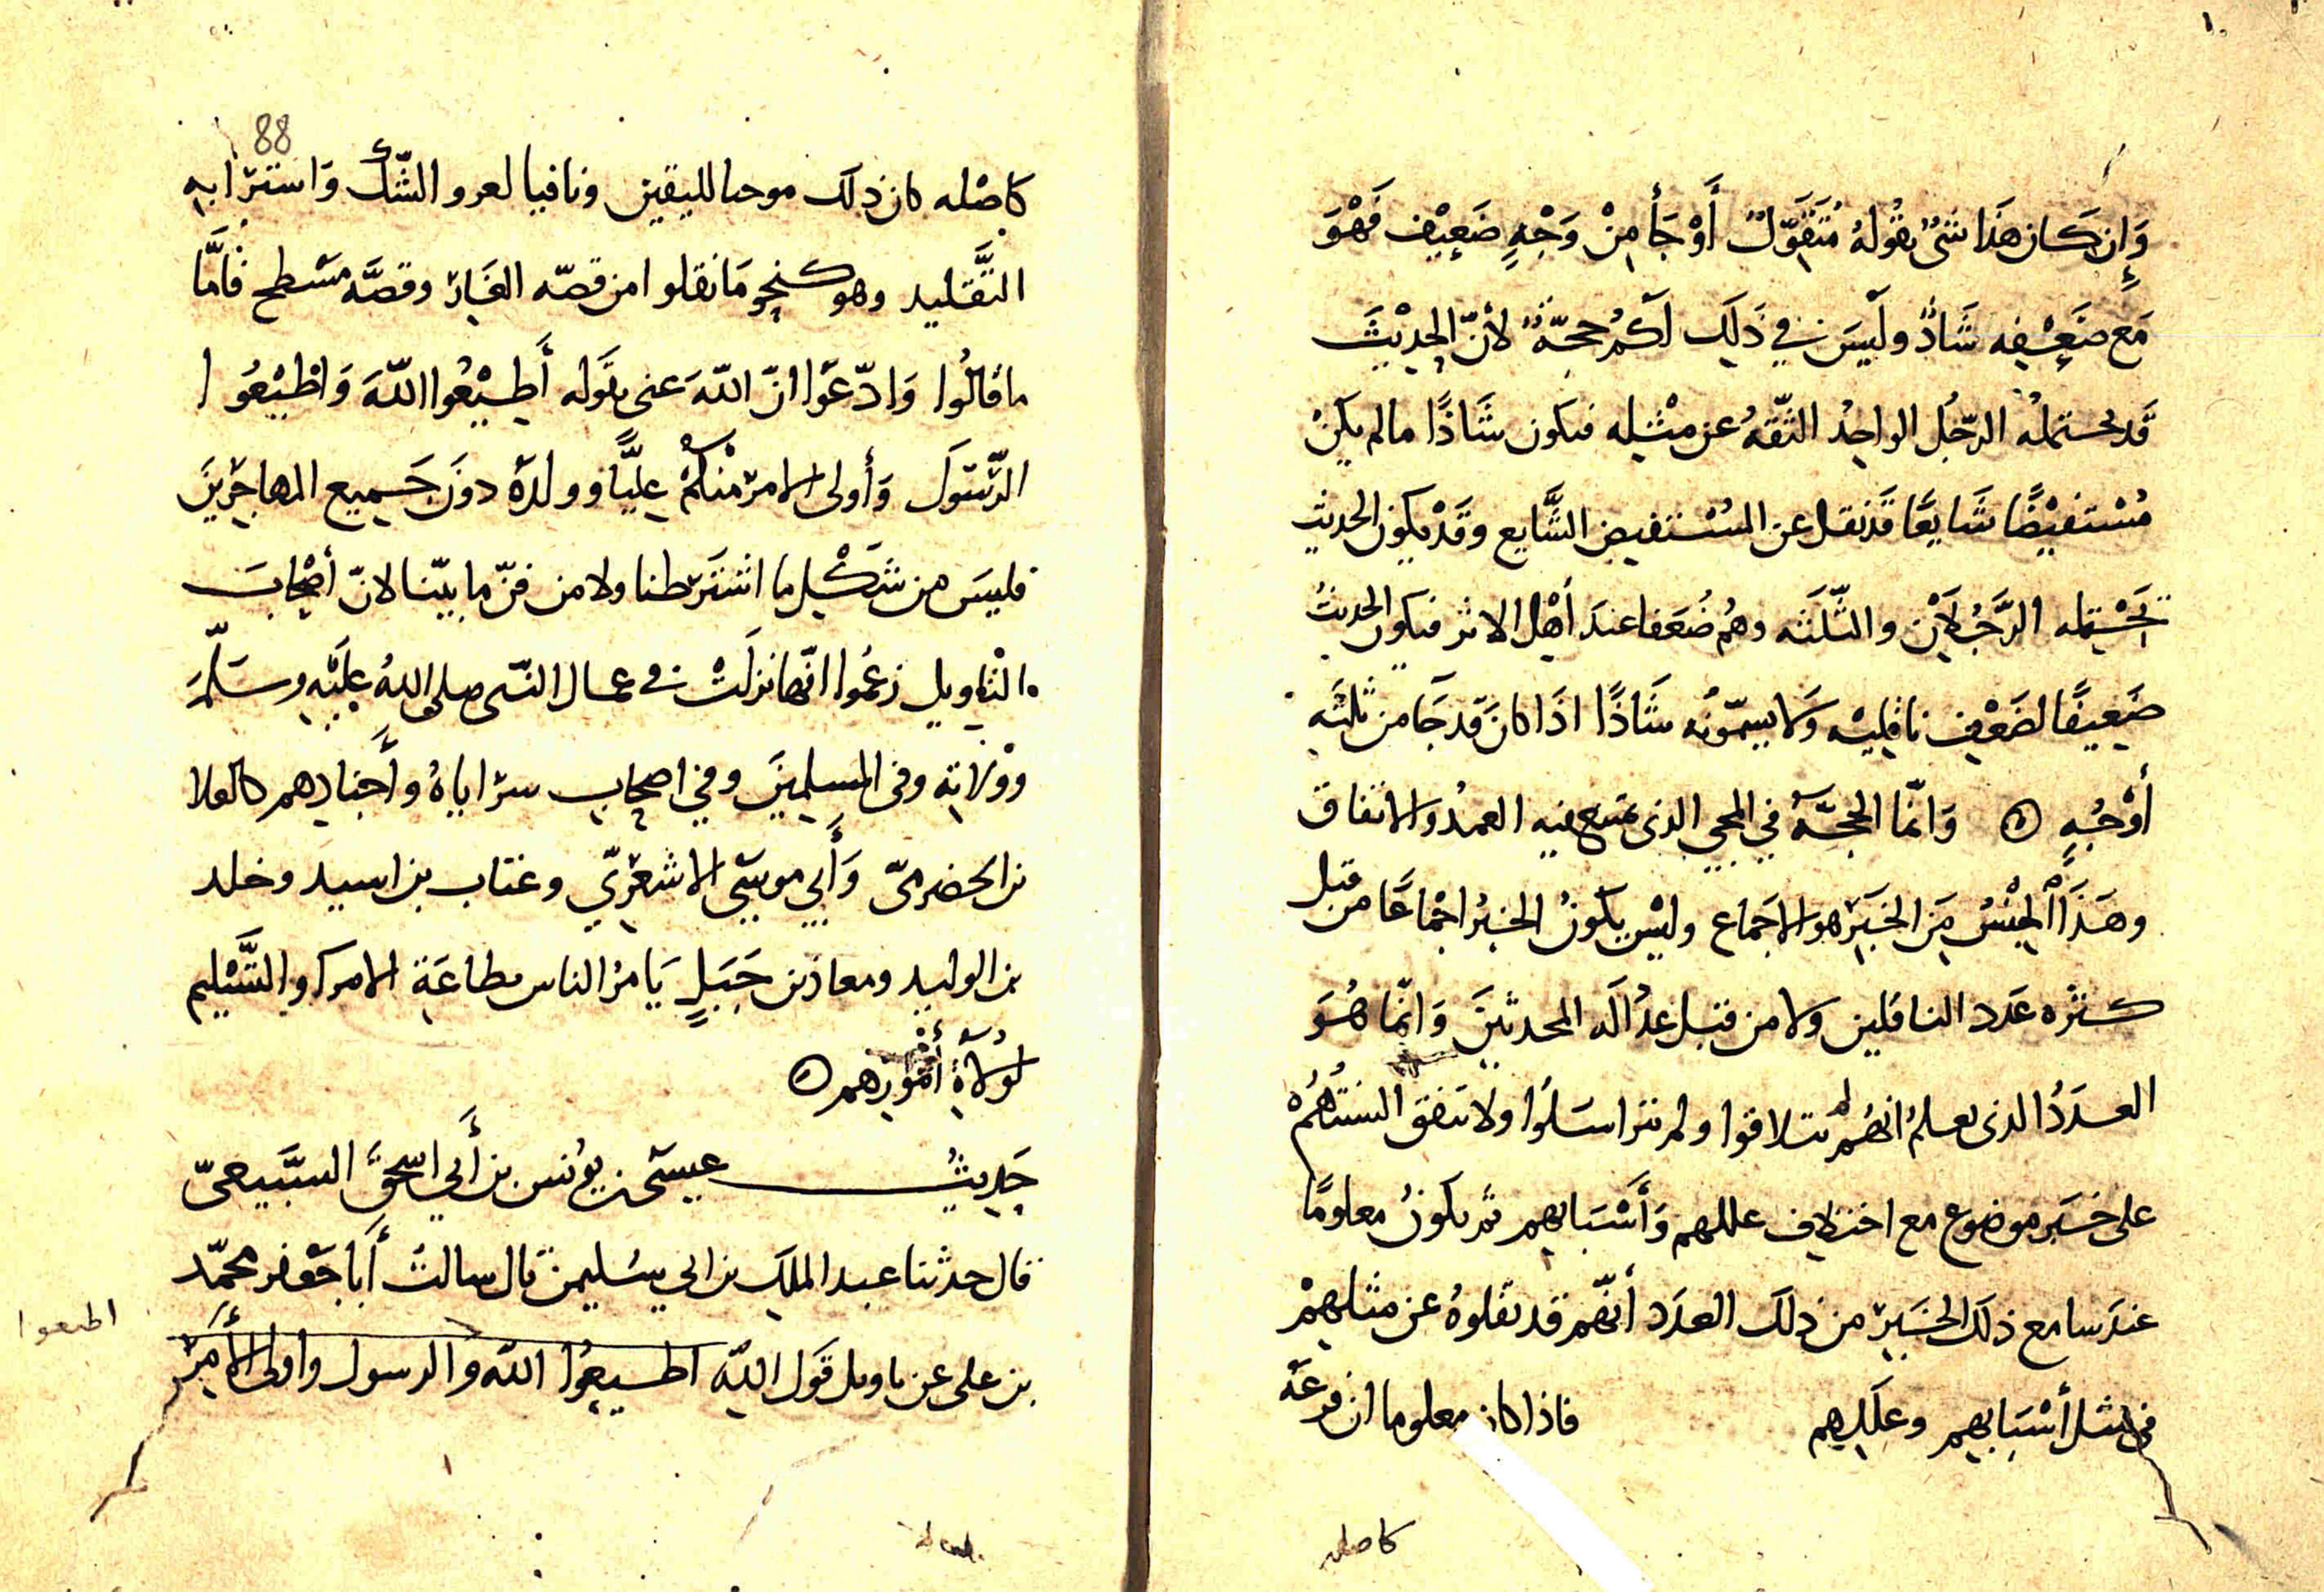 وَإِن كَان هَذَا شَيْءٌ يَقُولهُ مُتَقَوِّلٌ أَوْ جَأَ مِنْ وَجْهٍ ضَعِيْفٍ فَهْوَ
مَع ضَعْفِه شَاذٌّ ولَيسَ فِي ذَلِكَ لَكُمْ حجّةٌ لأنّ الحدِيْثَ
قَد يحتملهُ الرّجُل الواحِدُ الثّقَهُ عن مثْلِه فيكون شَاذًا مالم يَكنْ
مُسْتَفيْضًا شَايِعًا قَد نقل عن المسْتفيض الشَّايع وقَدْ يكون الحديث
يَحْتمله الرَّجُلَانْ والثّلَثَه وهُم ضُعَفا عندَ أهْل الاثر فيكون الحديثُ
ضَعِيفًا لضَعْف ناقلِيْه وَلا يسمّونُه شَاذًا اذَا كانَ قَد جَا من ثَلثَه
أَوْجُهٍ ۞ وَانّمَا الحجَّهُ في المجي الذي يمتنع فيه العمدُ والاتفاق
وهَذَا الجِنْسُ مِنَ الخَبَرِ هو الاجَماع وليْس يكونُ الخبرُ اجْمَاعًا من قبل
كثرْه عَدَد الناقلين ولا من قبل عدَالَه المحدثينَ وَانّما هُوَ
العدَدُ الذي يعلمُ انهُم لم يتلاقوا ولم يتراسَلُوا ولا تتفق السنتُهُمُ
على خَبر موضوع مع اختلاف عللهم وَأَسْبَابهم ثم يكونُ معلومًا
عندَ سامع ذلكَ الخَبَر من ذلك العدَد أنّهم قد نقلوهُ عن مثلهمْ
في مثل أسْبَابهم وعلَلِهم فاذا كان معلوما ان فرعَهُ
كاصله
88
كاصْله كان ذلك موجبا لليقين ونافيا لعرو الشّكّ وَاسْترَابه
التَّقليد وهو كنحو مَا نقلوا من قصّه الغَار وقصَّه مسْطح فَأَمَّا
ما قالُوا وَادّعَوا انّ اللّهَ عنى بقَوله أَطِيْعُوا اللّهَ وَاطِيْعُوا
الرّسُولَ وَأولى الامر منْكُمْ عليًّا وولدَهُ دونَ جَميع المهاجرِيْنَ
فليسَ من شَكْل ما اشترَطنا ولا من فنّ ما بيّنا لانّ أصْحابَ
التاويل زعُموا انّها نزلَتْ في عمال النّبى صلى اللهُ عليْه وسَلّمَ
ووُلاتِه وفي المسلمينَ وفي اصحاب سرَاياهُ وأَجنادهم كالعلا
بن الحضرميّ وَأَبي موسَى الاشعَرِيّ وعتاب بن اسيد وخلد
بن الوليد ومعاذ بن جَبَلٍ يَامرُ الناس بطاعَةِ الامرا والتَّسْلِيم
لوُلَاةِ أُمُورِهم ۞
حَدِيثُ عيسَى بن يوُنس بن أَبي اسحقَ السَّبيعىّ
قال حدثنا عبد الملِك بن ابي سُليمن قال سالتُ أَبا جَعْفر محمّد
بن على عن تاويل قَول اللّهِ اطيعُوا اللّه والرسول واولى الأمرِ
اطيعوا